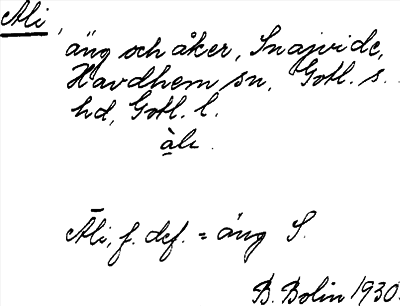 Ali,
äng och åker, Snajvide,
Havdhem sn, Gotl. s.
hd, Gotl. l.
àli.
Āli, f. def. = äng S.
B. Bolin 1930.